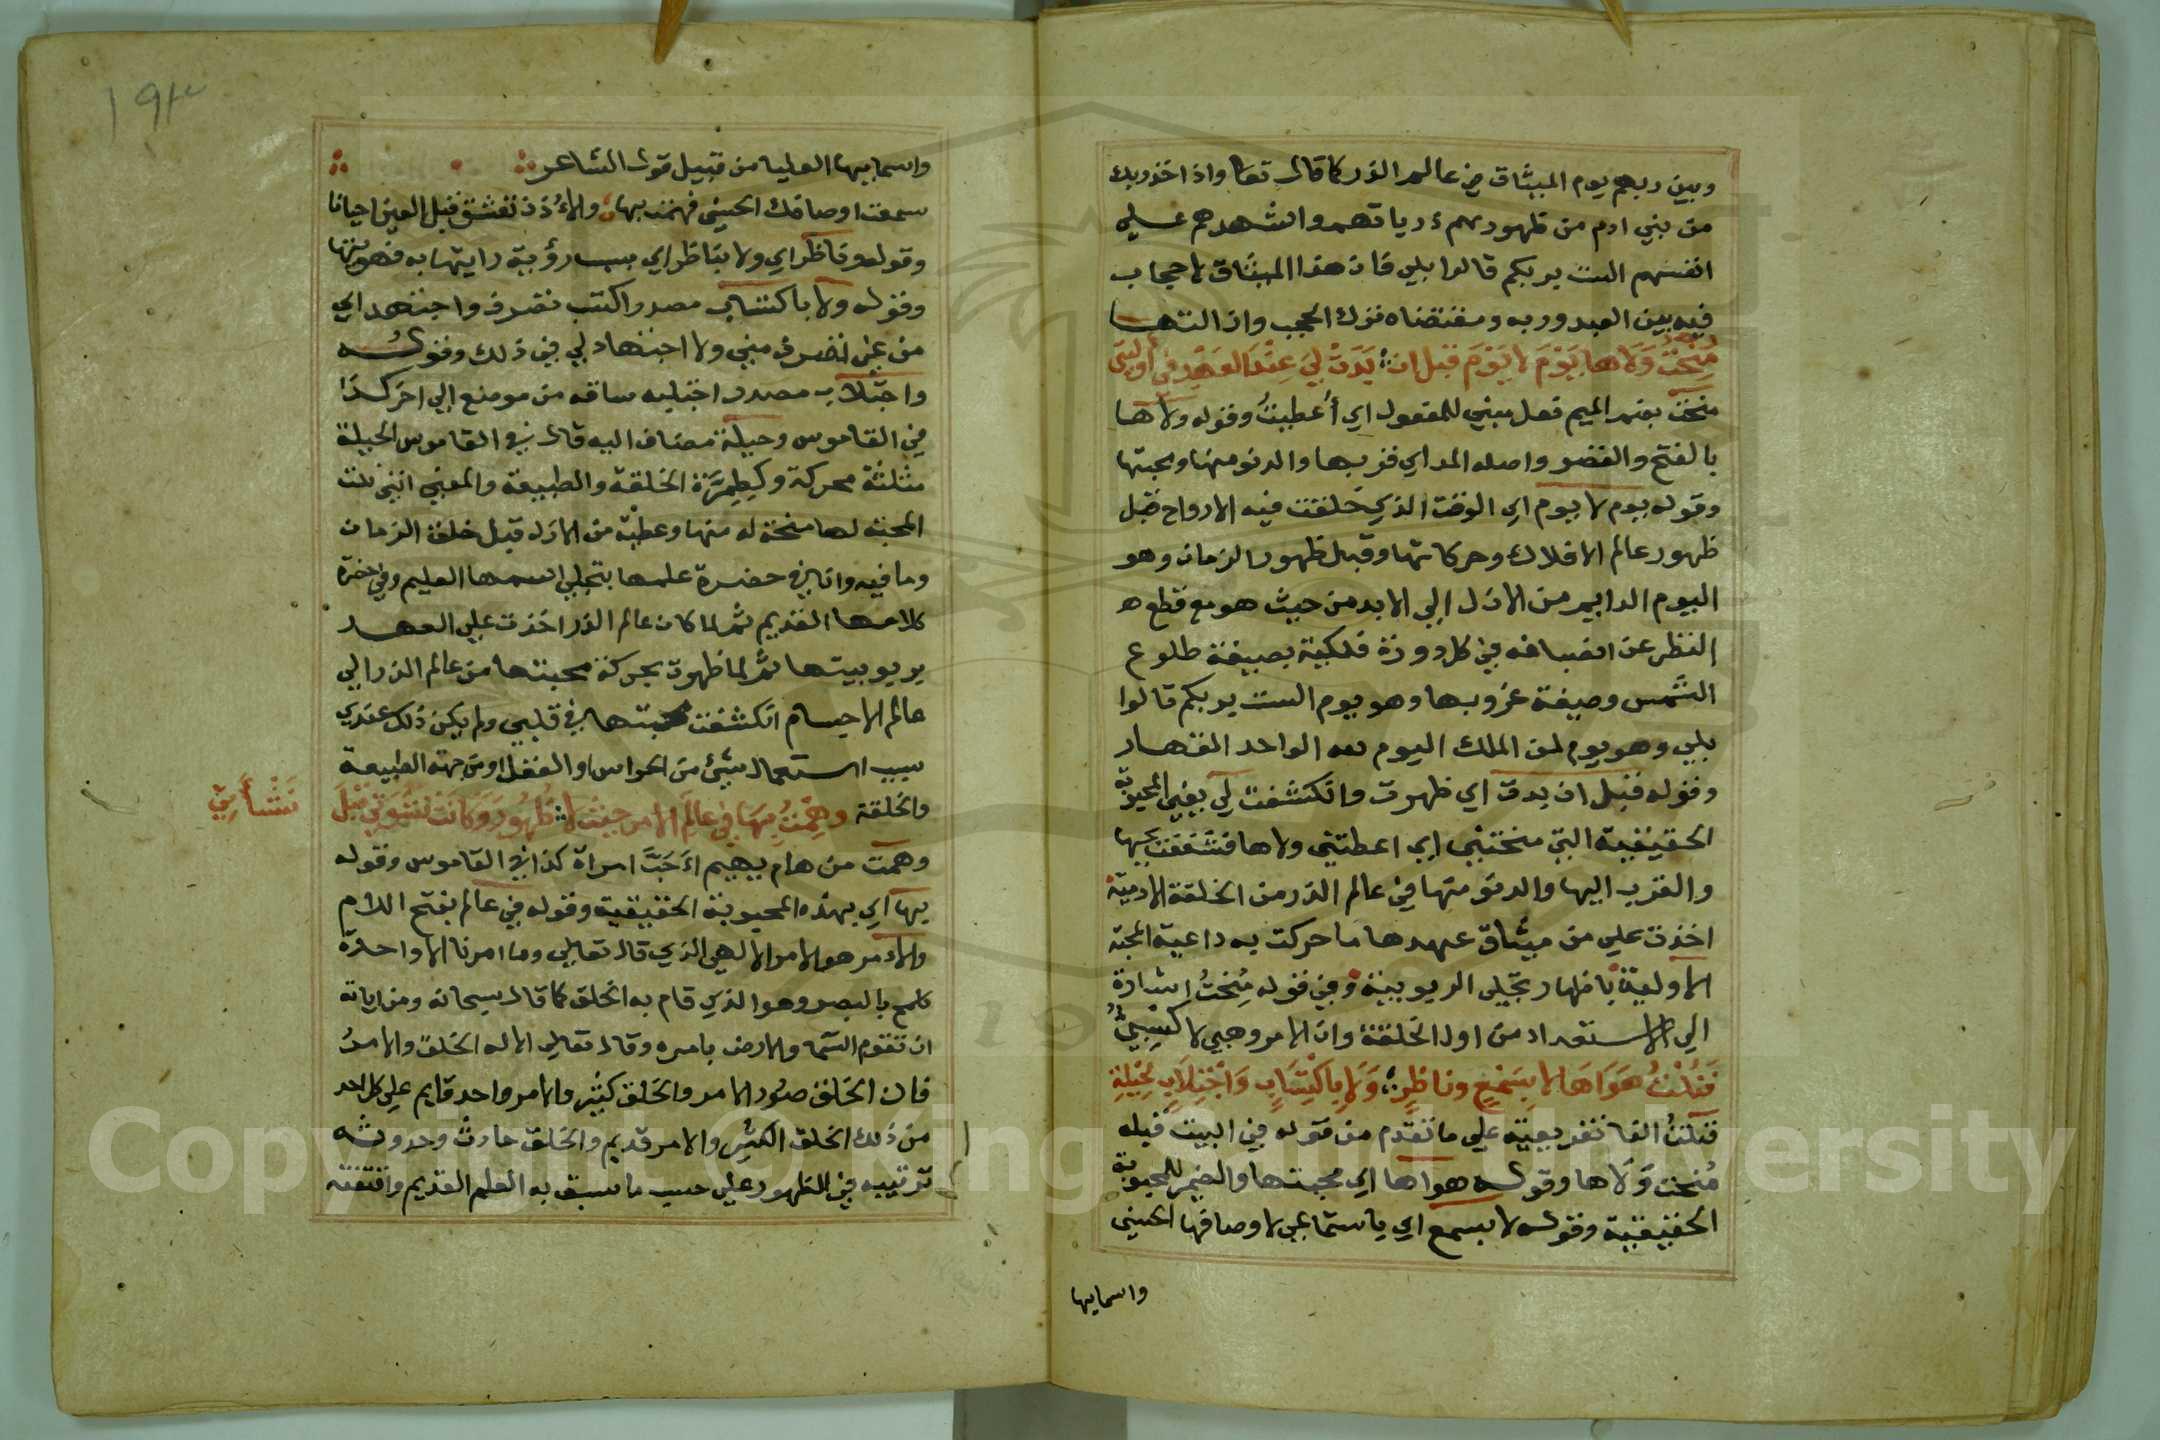 وبين ربهم يوم الميثاق في عالم الذر كما قال تعا واذ اخذ ربك
من بني ادم من ظهورهم ذرياتهم واشهدهم على
انفسهم الست بربكم قالوا بلى فان هذا الميثاق لا حجاب
فيه بين العبد وربه ومقتضاه ترك الحجب وازالتها
مُنِحْتُ وَلَاها يَوْمَ لا يَوْمَ قبل ان ؛ بَدَتْ لِيَ عِنْدَ العَهْدِ في أوليتي
منحت بضم الميم فعل مبني للمفعول اي أُعطيتُ وقوله ولاها
بالفتح والقصر واصله المد اي قربها والدنو منها ومحبتها
وقوله يوم لا يوم اي الوقت الذي خلقت فيه الارواح قبل
ظهور عالم الافلاك وحركاتها وقبل ظهور الزمان وهو
اليوم الدايم من الازل الى الابد من حيث هو مع قطع
النظر عن انصبافه في كل دورة فلكية بصبغة طلوع
الشمس وصبغة غروبها وهو يوم الست بربكم قالوا
بلى وهو يوم لمن الملك اليوم لله الواحد القهار
وقوله قبل ان بدت اي ظهرت وانكشفت لي يعني المحبوبة
الحقيقية التي منحتني اي اعطتني ولاها فشغفت بحبها
والقرب اليها والدنو منها في عالم الذر من الخلقة الادمية
اخذت علي من ميثاق عهدها ما حركت به داعية المحبة
الاولية باظهار تجلي الربوبية وفي قوله مُنِحْتُ اشارة
الى الاستعداد من اول الخلقة وان الامر وهبي لا كَسْبِيٌّ
فَنِلْتُ هَوَاهَا لا بِسَمْعٍ وناظرٍ ؛ وَلَا بِاكْتِسَابٍ وَاجْتِلَابِ جِبِلَّةِ
فنلت الفا تفريعية على ما تقدم من قوله في البيت قبله
مُنحت وَلَاها وقوله هواها اي محبتها والضمير للمحبوبة
الحقيقية وقوله لا بسمع اي باستماعي لاوصافها الحسنى
واسمايها
١٩٣
واسمايها العليا من قبيل قول الشاعر
سمعت اوصافك الحسنى فهمت بها ؛ والاُذْن تعشق قبل العين احيانا
وقوله وناظر اي ولا بناظر اي بسبب رؤية رايتها به فهويتها
وقوله ولا باكتساب مصدر اكتسب تصرف واجتهد اي
من غير تصرف مني ولا اجتهاد لي في ذلك وقوله
واجتلاب مصدر اجتلبه ساقه من موضع الى اخر كذا
في القاموس وجبلة مضاف اليه قال في القاموس الجبلة
مثلثة محركة وكطِمِرَّة الخلقة والطبيعة والمعنى انني نلت
المحبة لها منحة لي منها وعطية من الازل قبل خلق الزمان
وما فيه وانا في حضرة علمها بتجلي اسمها العليم وفي حضرة
كلامها القديم ثم لما كان عالم الذر اخذت علي العهد
بربوبيتها ثم لما ظهرت بحركة محبتها من عالم الذر الى
عالم الاجسام انكشفت محبتها في قلبي ولم يكن ذلك عندي
بسبب استعمال شئ من الحواس او العقل او من جهة الطبيعة
والخلقة وَهِمْتُ بِهَا في عالَمِ الامر حيثُ لا ؛ ظُهُورَ وَكانَتْ نَشْوَتي قَبْلَ
نَشْأَتِي
وهمت من هام يهيم اَحَبَّ امراة كذا في القاموس وقوله
بها اي بهذه المحبوبة الحقيقية وقوله في عالم بفتح اللام
والامر هو الامر الالهي الذي قال تعالى وما امرنا الا واحدة
كلمح بالبصر وهو الذي قام به الخلق كما قال سبحانه ومن اياته
ان تقوم السما والارض بامره وقال تعالى الا له الخلق والامرُ
فان الخلق صُور الامر والخلق كثير والامر واحد قايم على كل احد
من ذلك الخلق الكثير والامر قديم والخلق حادث وحدوثه
ترتيبه في الظهور على حسب ما سبق به العلم القديم واقتضته
Copyright © King Saud University